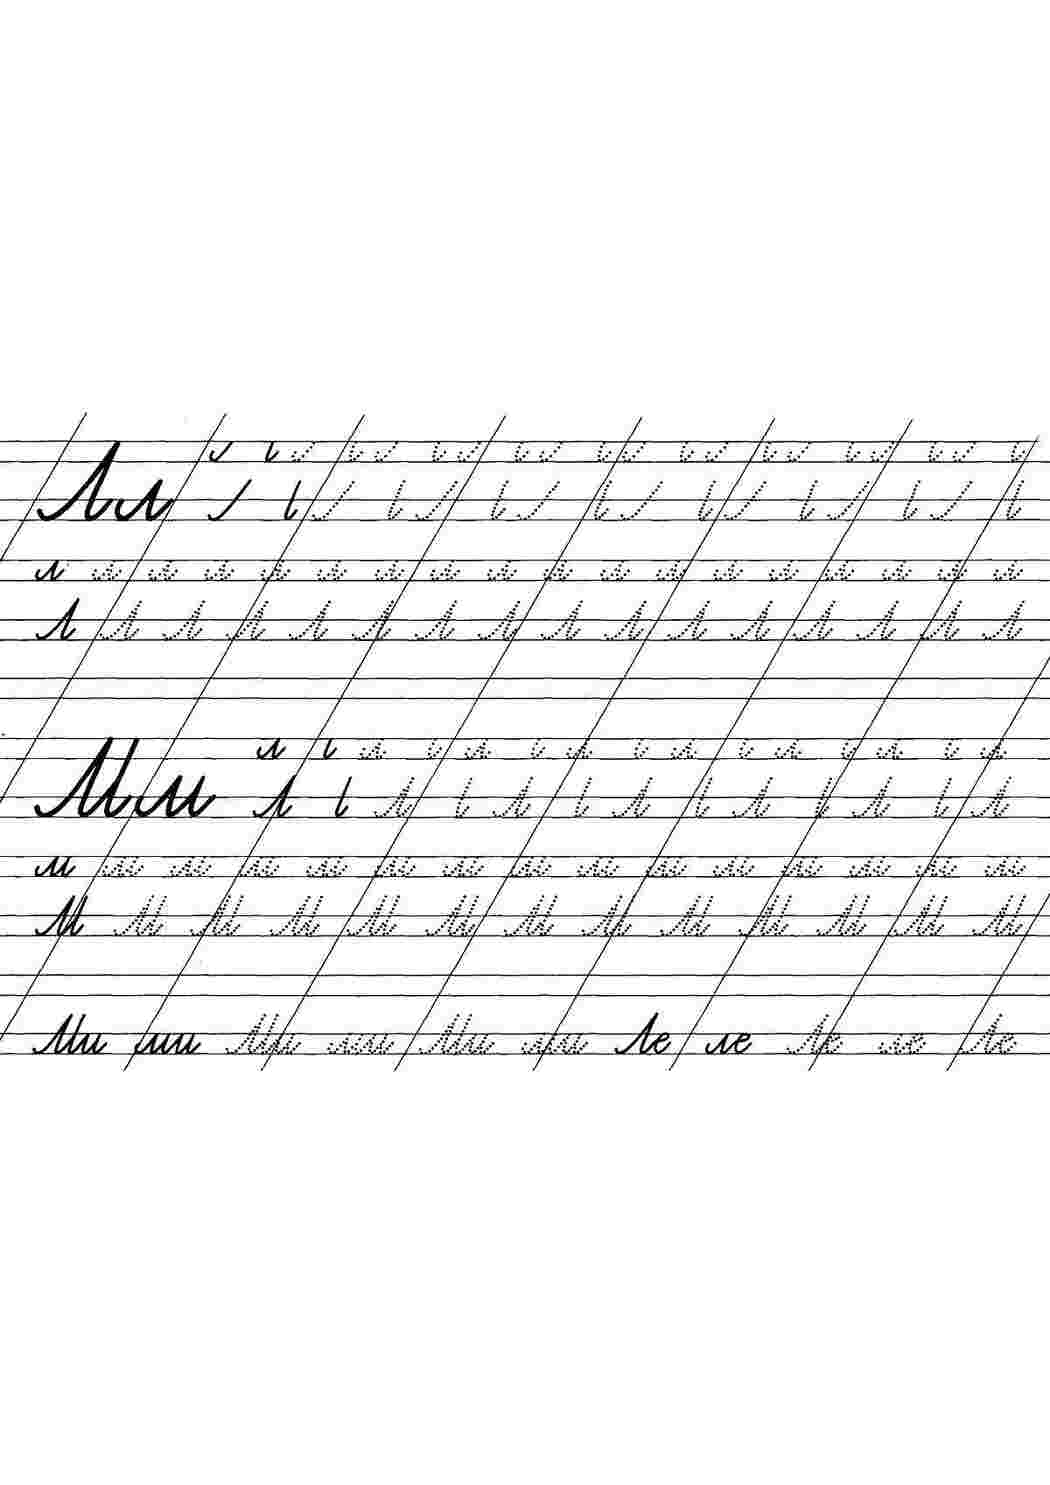 Лл
л л л л л л л л л л л л л л л л л л
Л Л Л Л Л Л Л Л Л Л Л Л Л Л Л Л
л л л л л л л л
Мм Л Л Л Л Л Л Л
м м м м м м м м м м м м м м м
М М М М М М М М М М М М М
Ми ми Ми ми Ми ми Ле ле Ле ле Ле